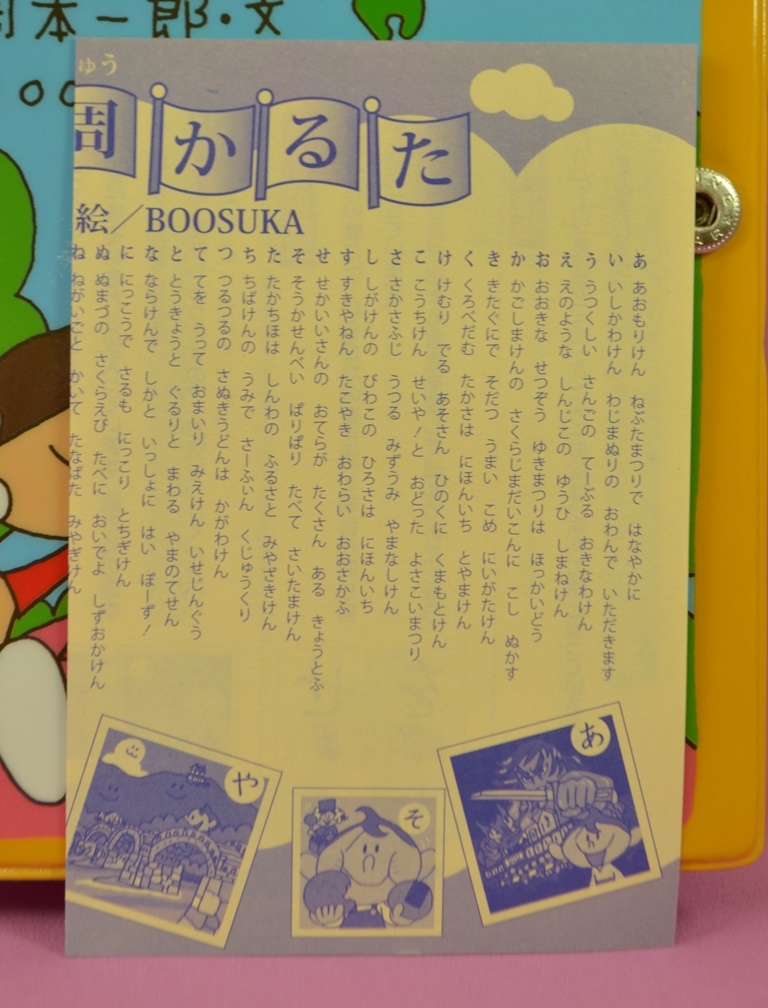 本一郎・文
ゅう
周かるた
絵／BOOSUKA
あ あおもりけん ねぶたまつりで はなやかに
い いしかわけん わじまぬりの おわんで いただきます
う うつくしい さんごの てーぶる おきなわけん
え えのような しんじこの ゆうひ しまねけん
お おおきな せつぞう ゆきまつりは ほっかいどう
か かごしまけんの さくらじまだいこんに こし ぬかす
き きたぐにで そだつ うまい こめ にいがたけん
く くろべだむ たかさは にほんいち とやまけん
け けむり でる あそさん ひのくに くまもとけん
こ こうちけん せいや！と おどった よさこいまつり
さ さかさふじ うつる みずうみ やまなしけん
し しがけんの びわこの ひろさは にほんいち
す すきやねん たこやき おわらい おおさかふ
せ せかいいさんの おてらが たくさん ある きょうとふ
そ そうかせんべい ぱりぱり たべて さいたまけん
た たかちほは しんわの ふるさと みやざきけん
ち ちばけんの うみで さーふぃん くじゅうくり
つ つるつるの さぬきうどんは かがわけん
て てを うって おまいり みえけん いせじんぐう
と とうきょうと ぐるりと まわる やまのてせん
な ならけんで しかと いっしょに はい ぽーず！
に にっこうで さるも にっこり とちぎけん
ぬ ぬまづの さくらえび たべに おいでよ しずおかけん
ね ねがいごと かいて たなばた みやぎけん
や
そ
あ